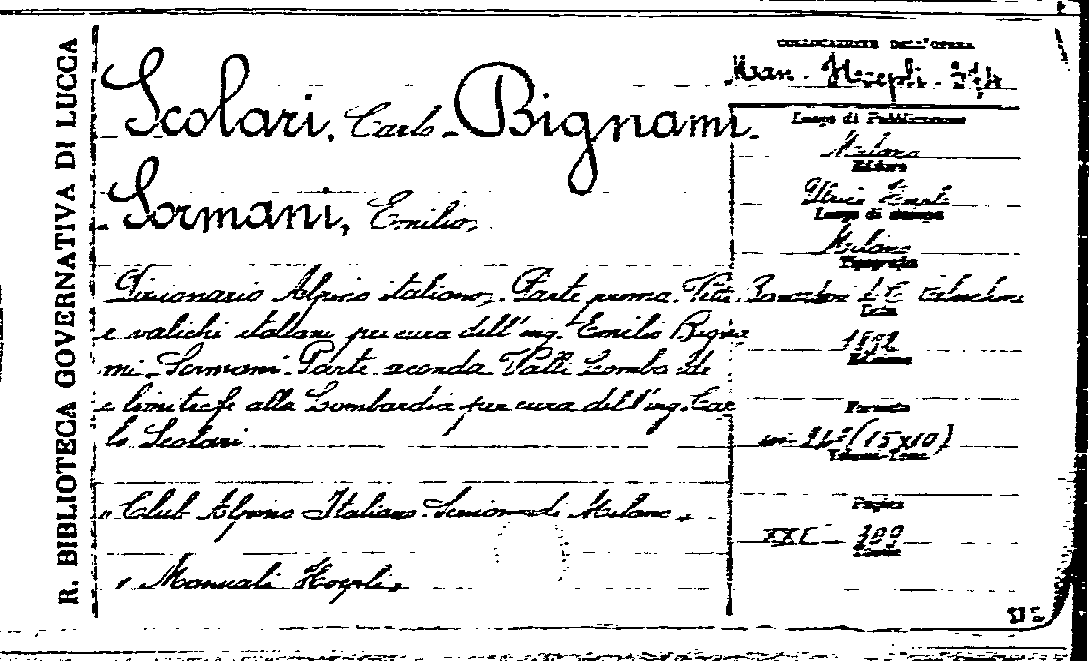 R. BIBLIOTECA GOVERNATIVA DI LUCCA
COLLOCAZIONE DELL'OPERA
Man. Hoepli.
Scolari, Carlo - Bignami
Sormani, Emilio,
Dizionario Alpino italiano. Parte prima. Vette
e valichi italiani per cura dell'ing. Emilio Bigna
mi-Sormani. Parte seconda Valli Lombarde
e limitrofe alla Lombardia per cura dell'ing. Car
lo Scolari
"Club Alpino Italiano. Sezione di Milano"
"Manuali Hoepli"
Luogo di Pubblicazione
Milano
Editore
Ulrico Hoepli
Luogo di stampa
Milano
Tipografia
Data
1892
Edizione
Formato
(15x10)
Pagine
309